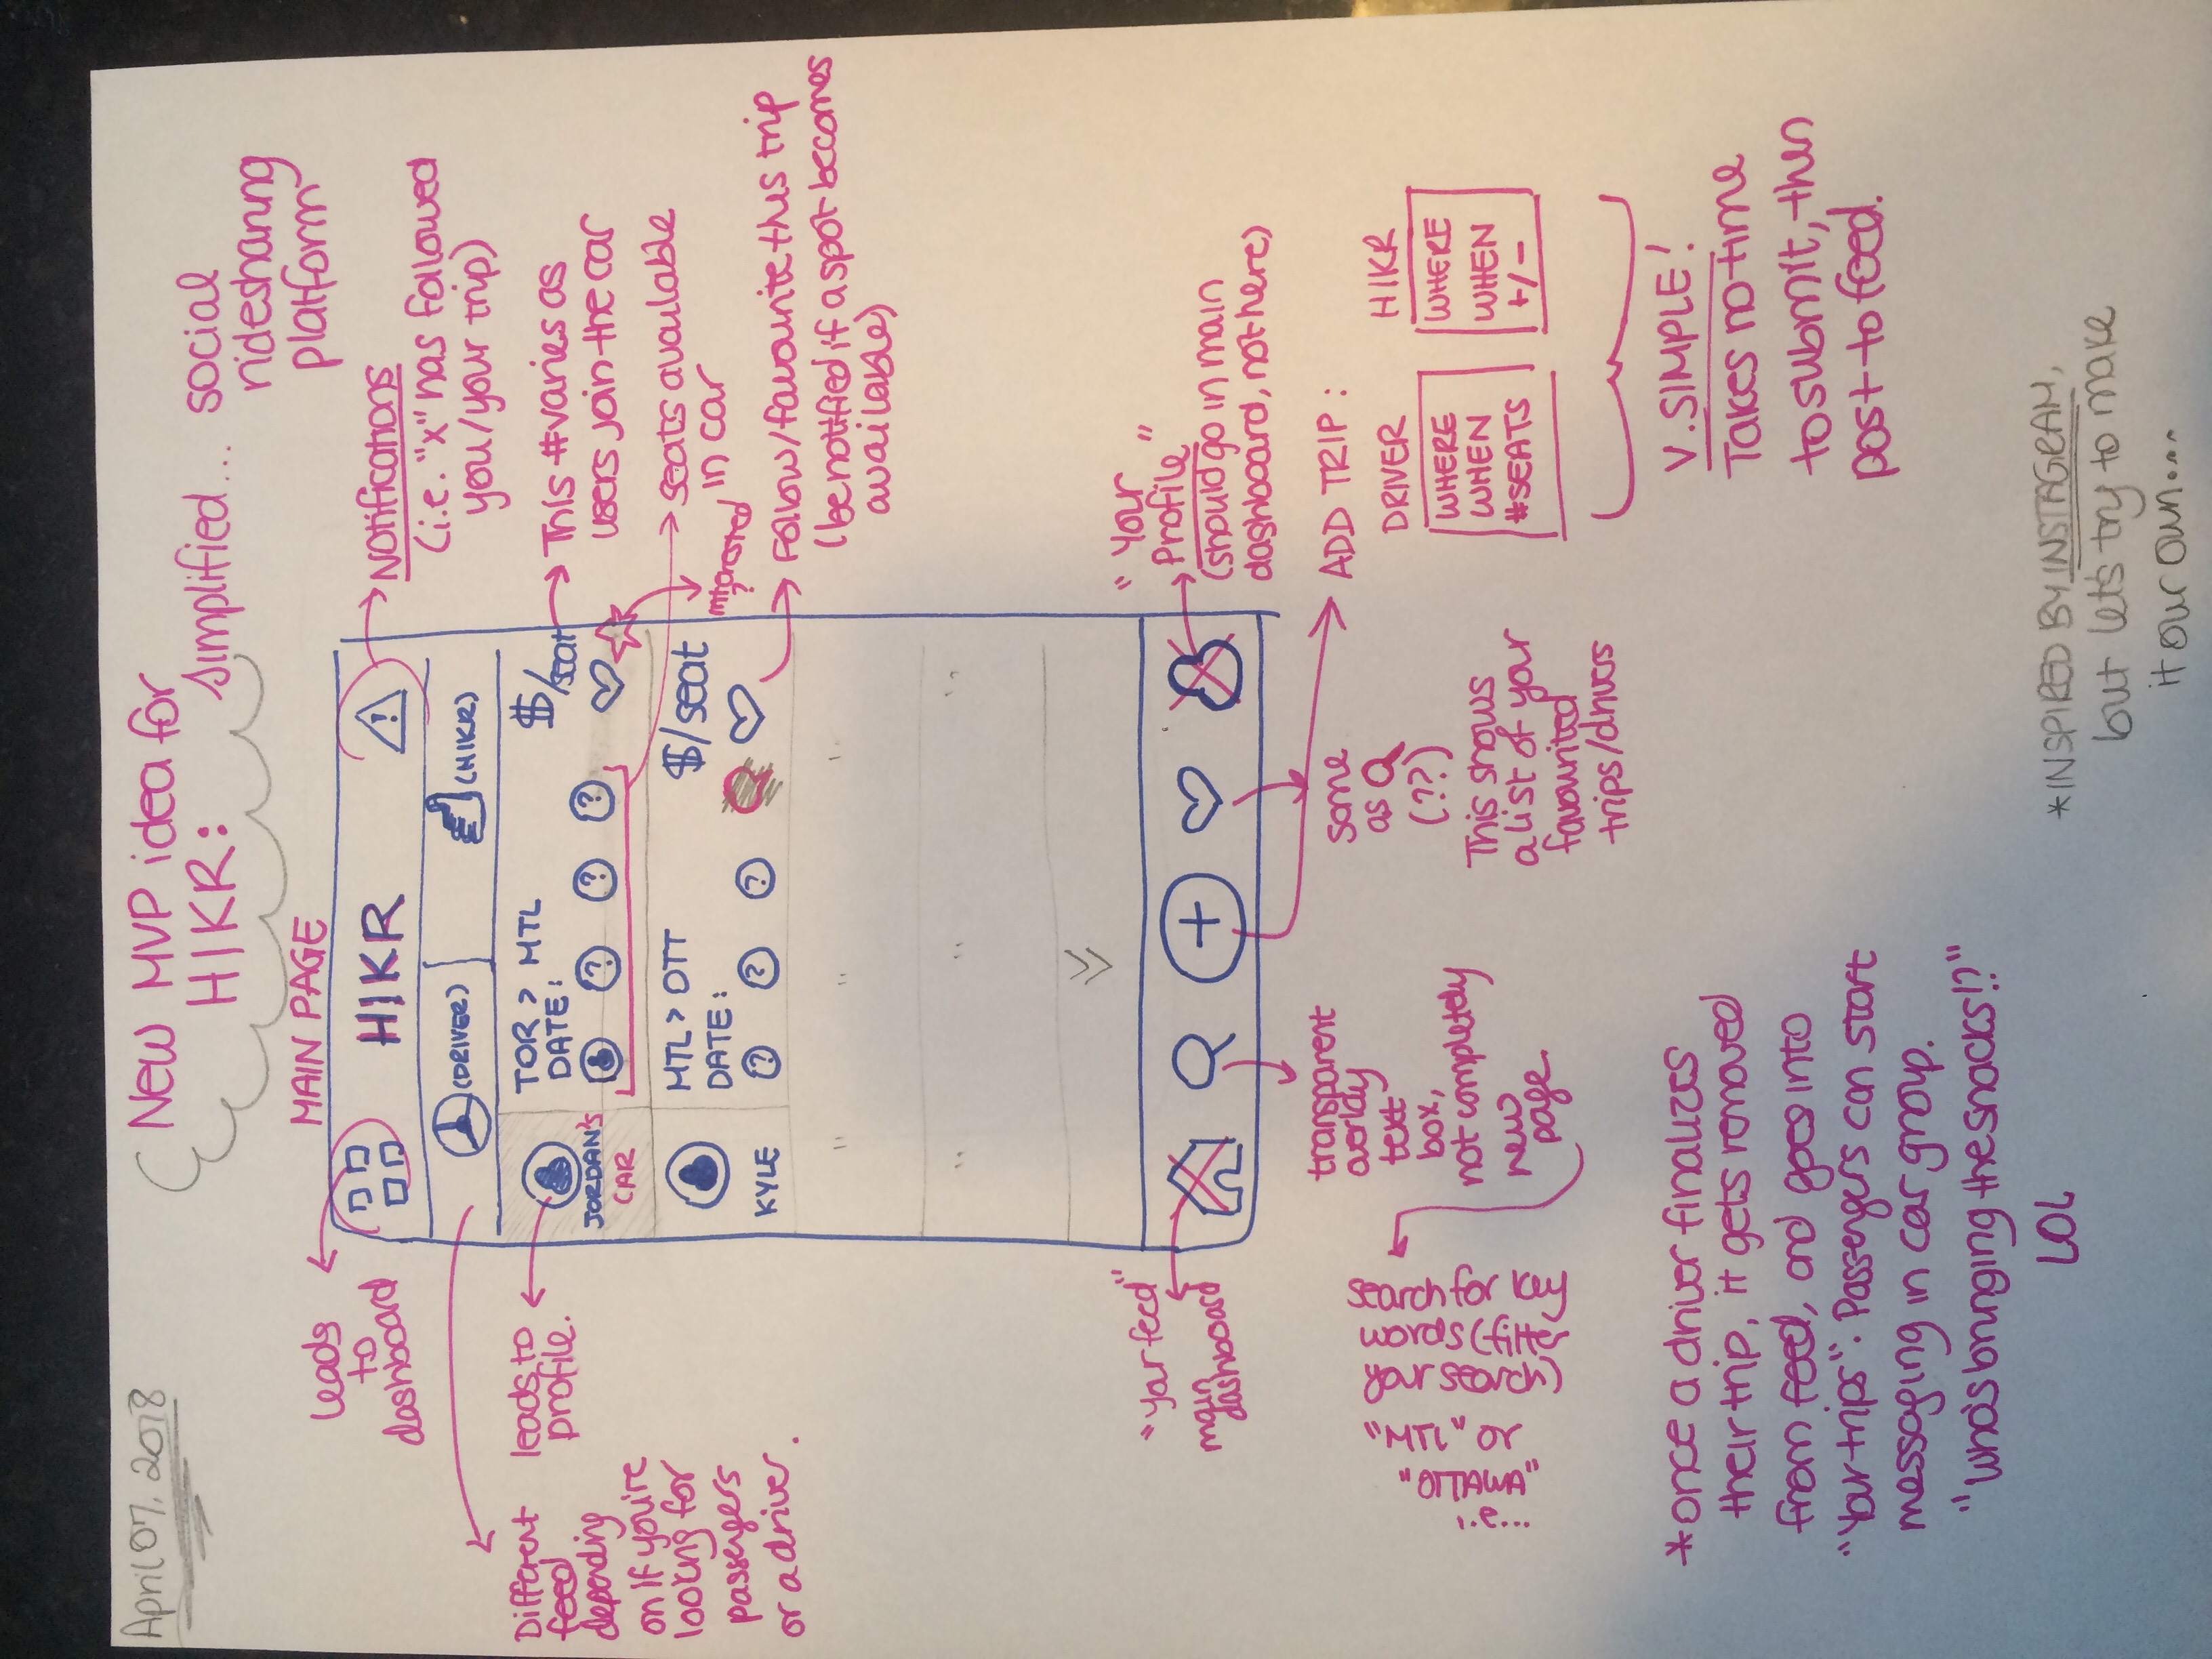 April 07, 2018
New MVP idea for
HIKR:
simplified... social
ridesharing
platform
MAIN PAGE
leads
to
dashboard
HIKR
!
Notifications
(i.e. "x" has followed
you/your trip)
(DRIVER)
(HIKR)
Different
feed
depending
on if you're
looking for
passengers
or a driver.
leads to
profile.
JORDAN'S
CAR
TOR > MTL
DATE:
? ? ?
$/seat
This # varies as
users join the car
seats available
in car
interested
?
KYLE
MTL > OTT
DATE:
? ? ?
$/seat
Follow/favourite this trip
(be notified if a spot becomes
available)
" " "
" " "
"Your feed"
main
dashboard
+
"Your
Profile"
(should go in main
dashboard, not here)
transparent
overlay
text
box,
not completely
new
page.
Search for key
words (filter
your search)
"MTL" or
"OTTAWA"
i.e...
same
as
(??)
This shows
a list of your
favourited
trips/drivers
ADD TRIP:
DRIVER
WHERE
WHEN
#SEATS
HIKR
WHERE
WHEN
+/-
V. SIMPLE!
Takes no time
to submit, then
post to feed.
*once a driver finalizes
their trip, it gets removed
from feed, and goes into
"Your trips". Passengers can start
messaging in car group.
"Who's bringing the snacks!?"
LOL
*INSPIRED BY INSTAGRAM,
but let's try to make
it our own...